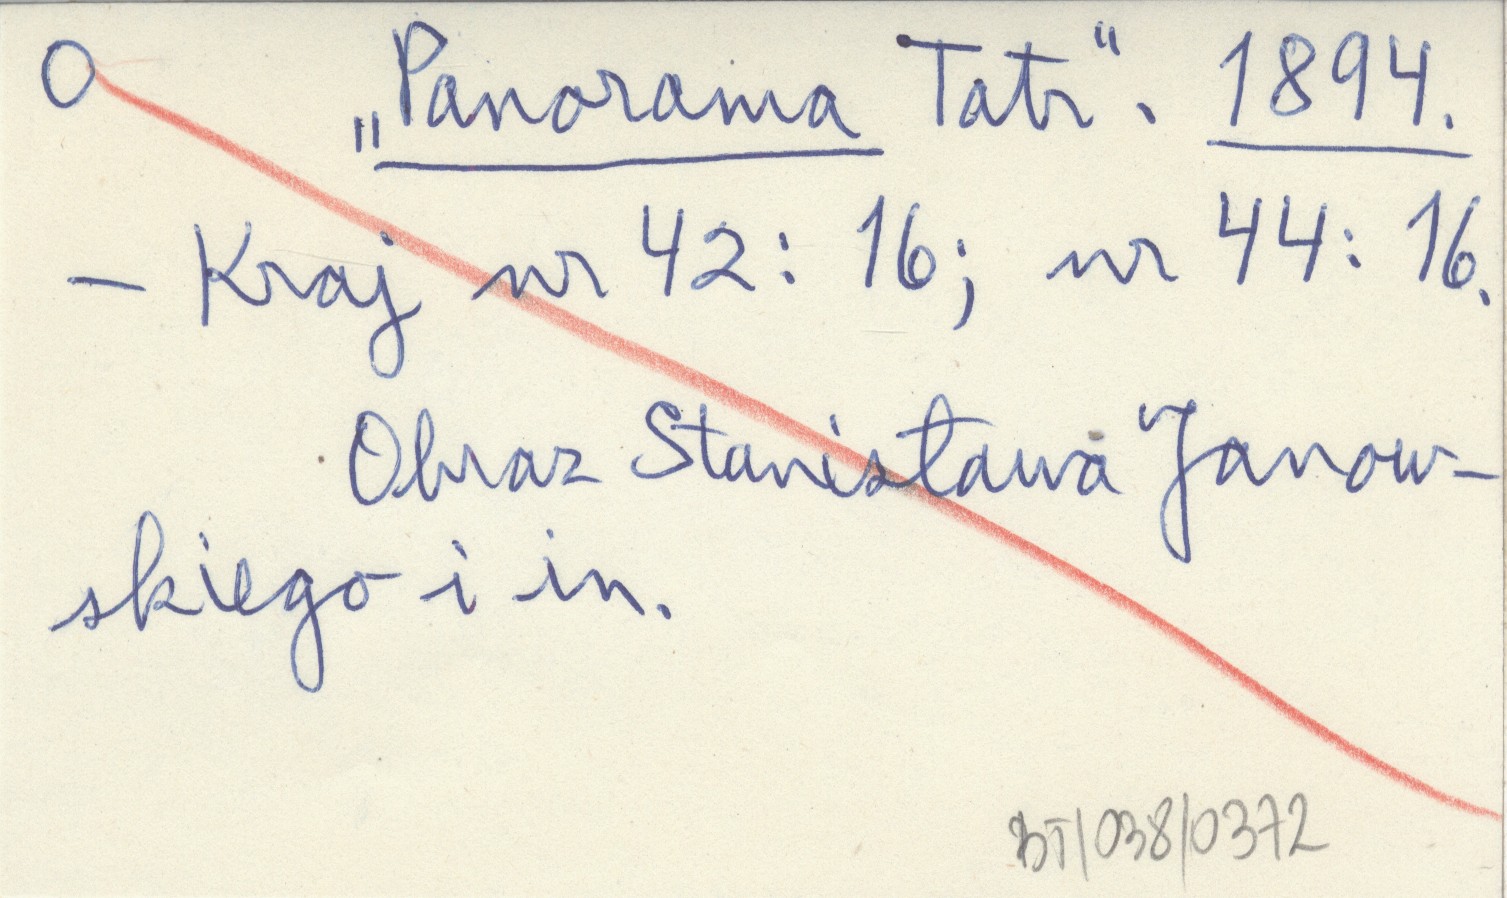 O „Panorama Tatr“. 1894.
– Kraj nr 42: 16; nr 44: 16.
Obraz Stanisława Janow-
skiego i in.
BT/038/0372